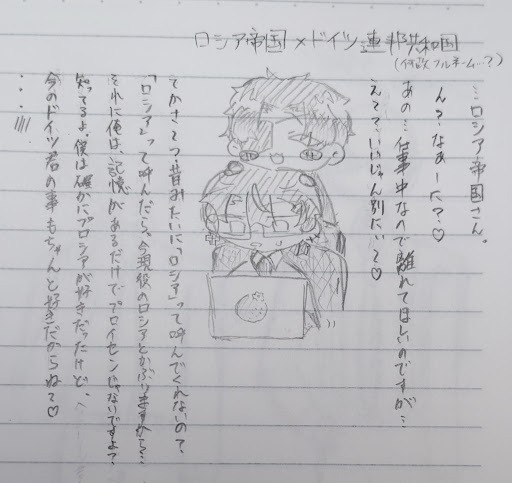 ロシア帝国×ドイツ連邦共和国
(何故フルネーム…?)
…ロシア帝国さん。
ん?なぁーに?♡
あの…仕事中なので離れてほしいのですが…
えーて、いいじゃん別にいて♡
てかさーてつ、昔みたいに「ロシア」って呼んでくれないの?
「ロシア」って呼んだら、今現役のロシアとかぶりますから…
それに俺は、記憶があるだけでプロイセンじゃないですよ?
知ってるよ。僕は確かにプロイセンが好きだったけど、
今のドイツ君の事もちゃんと好きだからね♡
・・・////